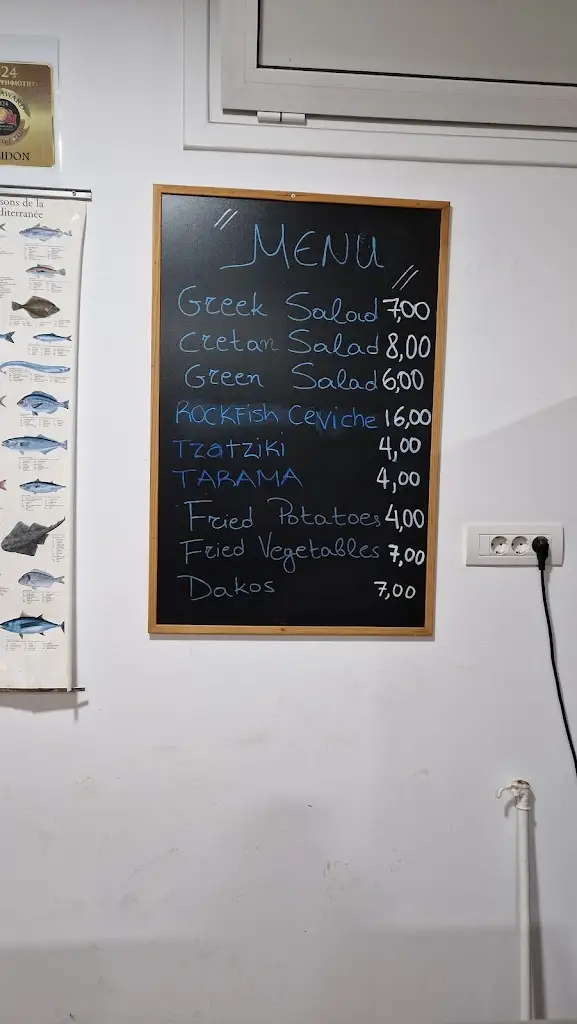 24
AWARD
IDON
sons de la
diterranée
MENU
Greek Salad 7,00
Cretan Salad 8,00
Green Salad 6,00
ROCKFisH Ceviche 16,00
Tzatziki 4,00
TARAMA 4,00
Fried Potatoes 4,00
Fried Vegetables 7,00
Dakos 7,00